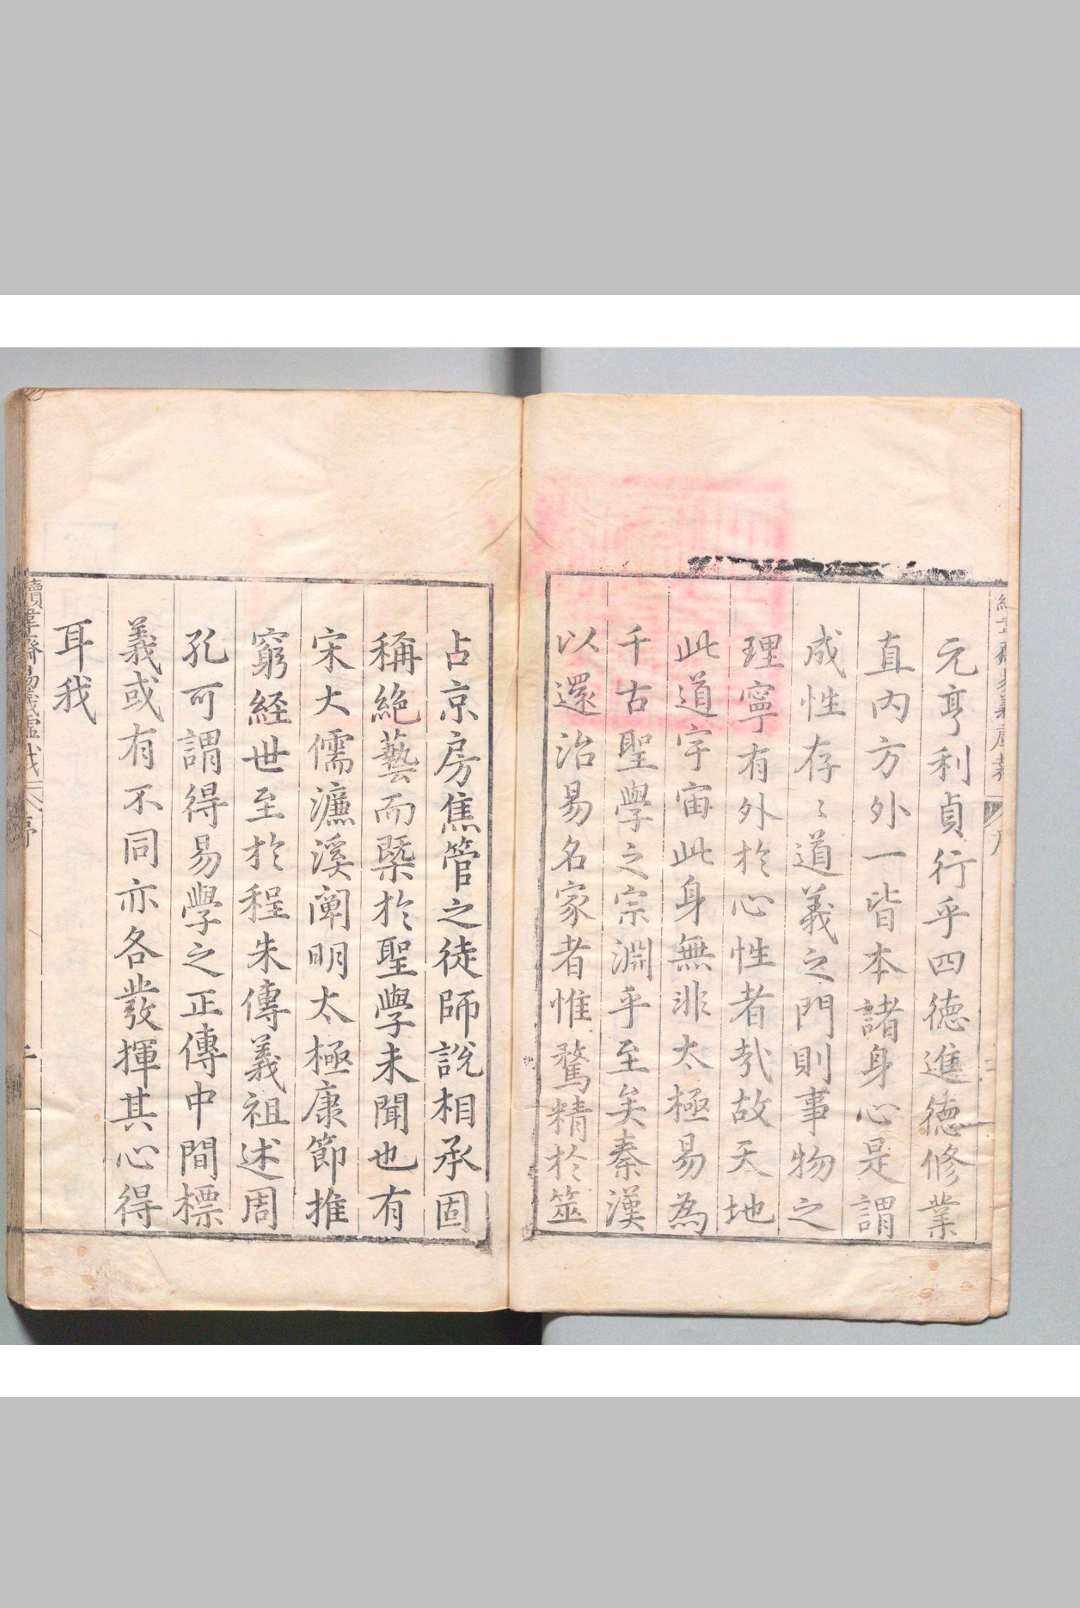 元亨利貞行乎四徳進徳修業
直內方外一皆本諸身心是謂
成性存〻道義之門則事物之
理寧有外於心性者㢤故天地
此道宇宙此身無非太極易為
千古聖學之宗淵乎至矣秦漢
以還治易名家者惟騖精於筮
占京房焦管之徒師說相承固
稱絶藝而槩於聖學未聞也有
宋大儒濂溪闡明太極康節推
窮經世至於程朱傳義祖述周
孔可謂得易學之正傳中間標
義或有不同亦各發揮其心得
耳我